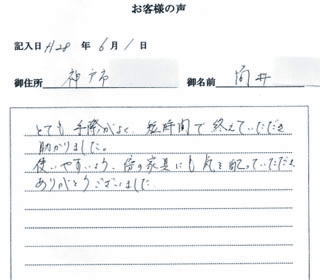 お客様の声
記入日 H28 年 6月 1日
御住所 神戸市 御名前 筒井
とても手際がよく、短時間で終えていただき
助かりました。
使いやすいよう、他の家具にも気を配っていただき
ありがとうございました